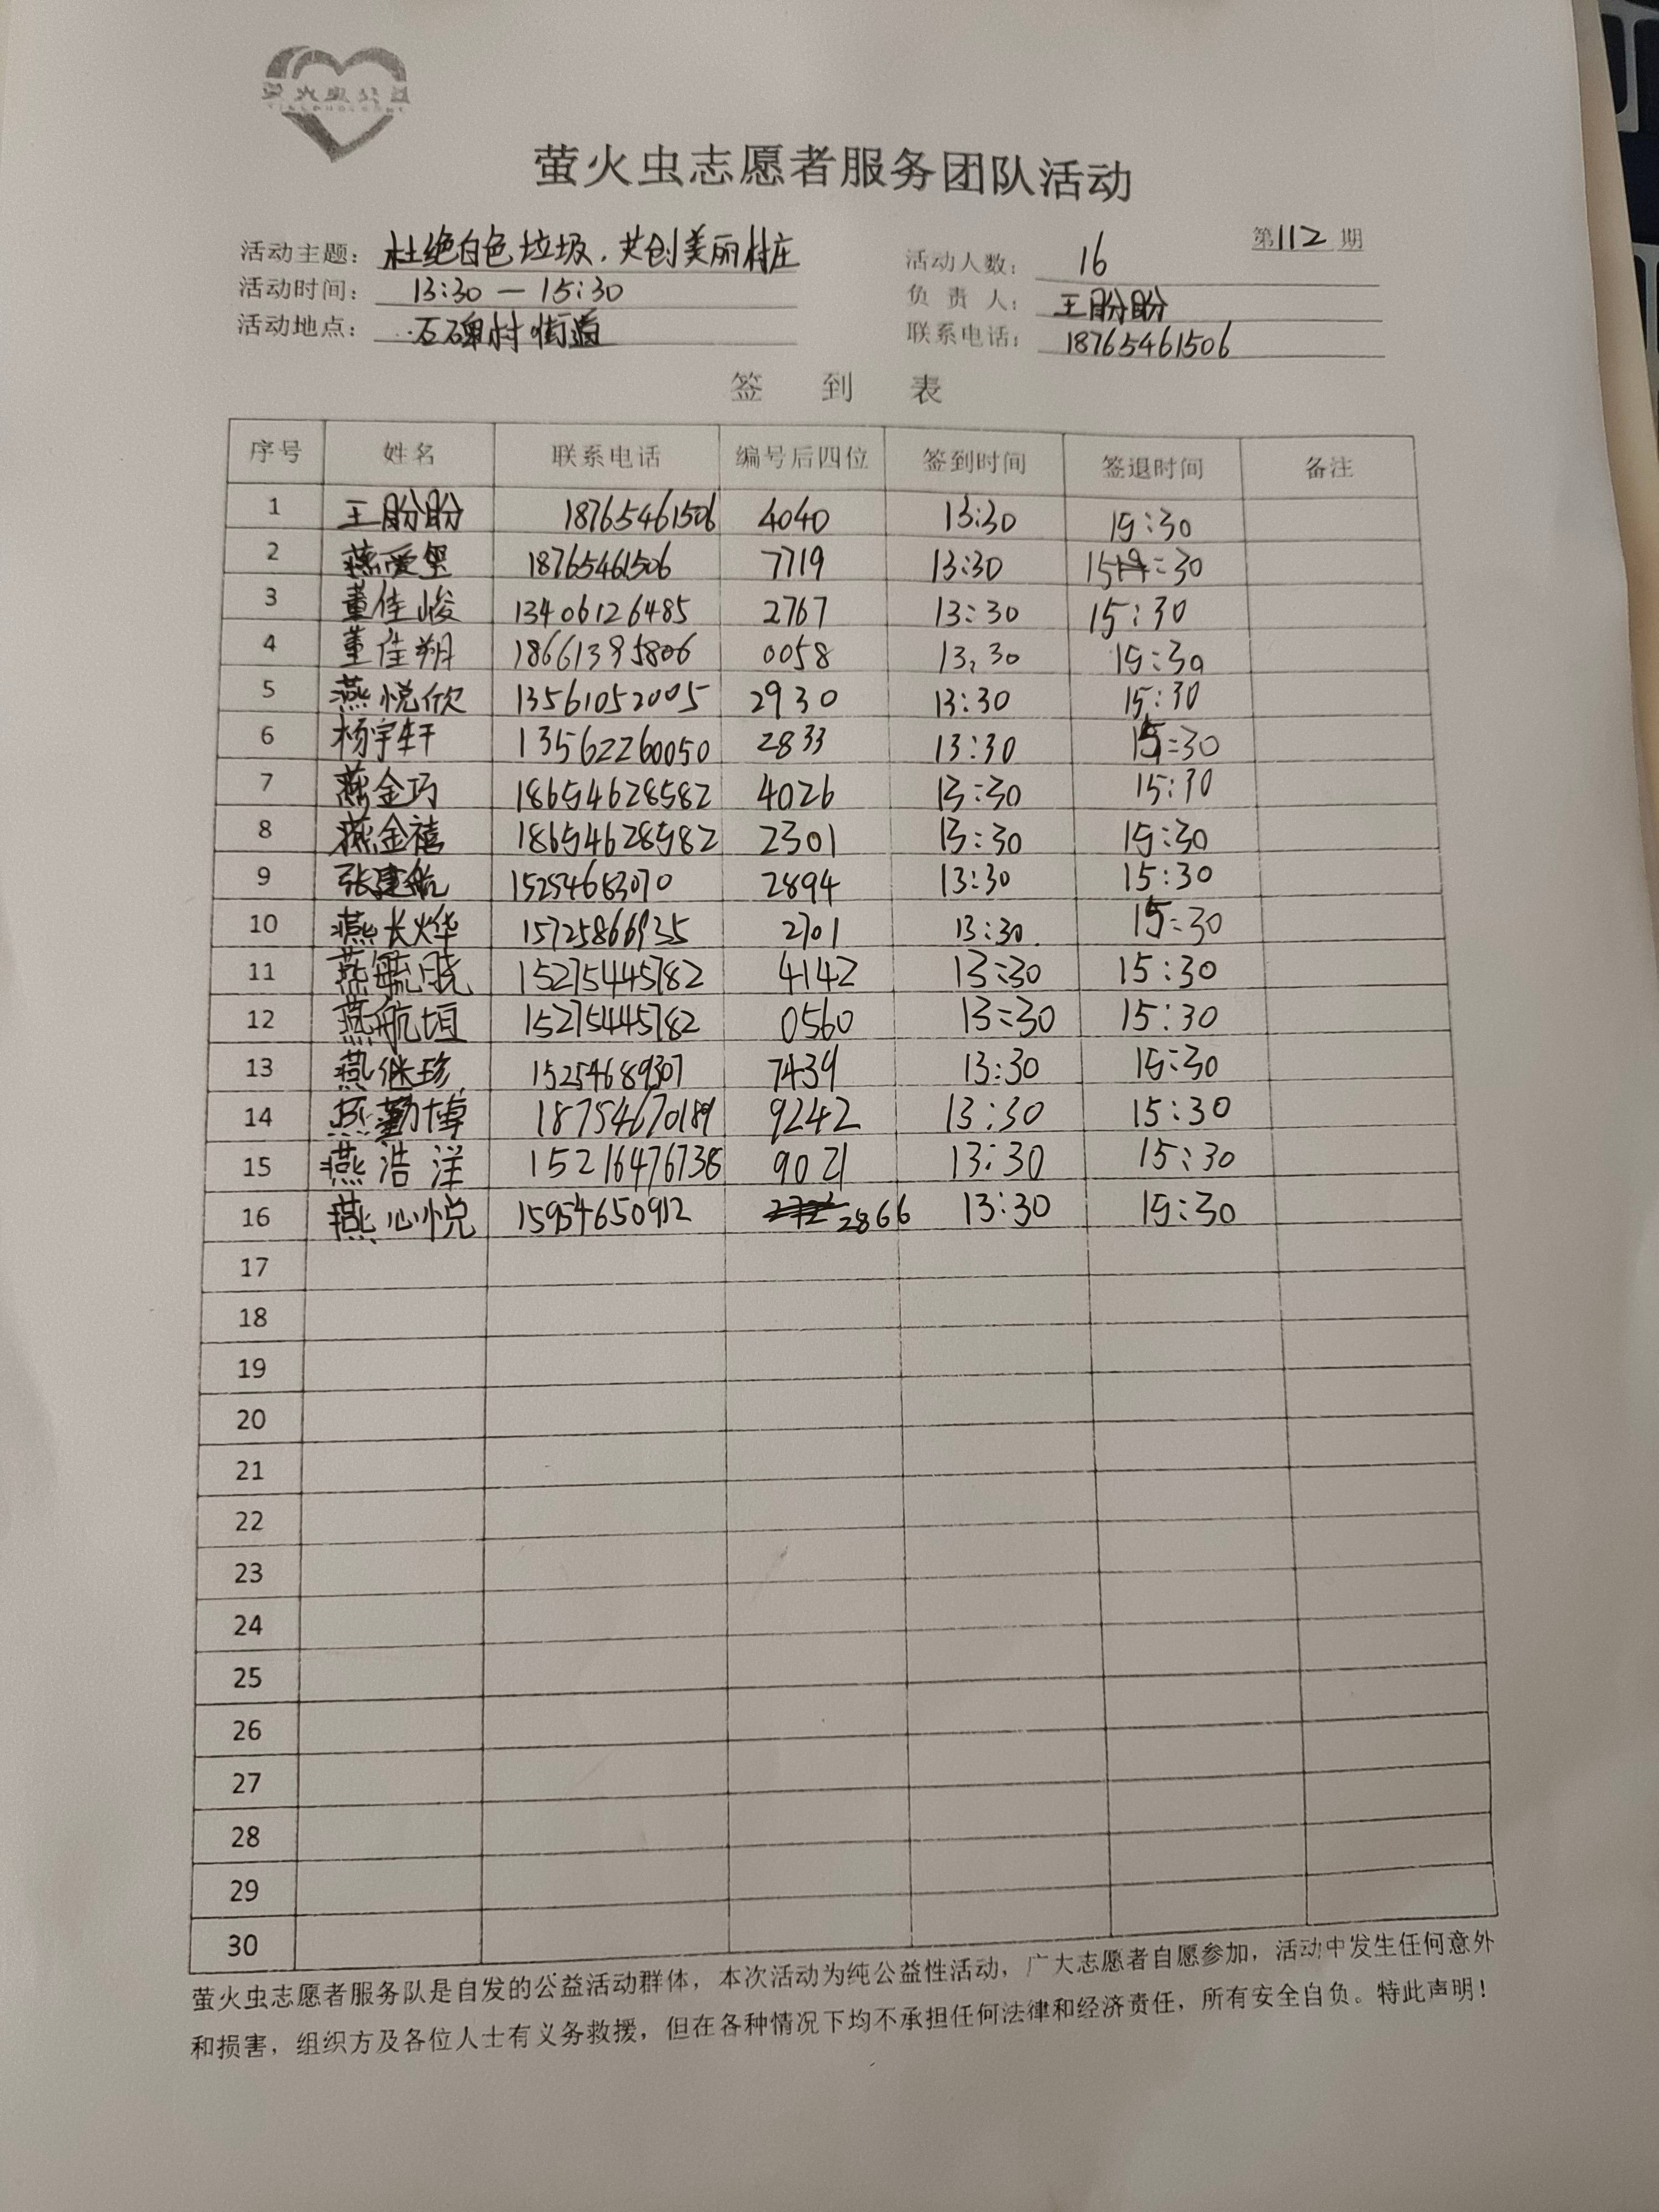 萤火虫公益
萤火虫志愿者服务团队活动
第112期
活动主题：杜绝白色垃圾.共创美丽村庄 活动人数：16
活动时间：13:30 — 15:30 负责人：王盼盼
活动地点：石碑村街道 联系电话：18765461506
签到表
序号 姓名 联系电话 编号后四位 签到时间 签退时间 备注
1 王盼盼 18765461506 4040 13:30 15:30
2 燕爱堡 18765461506 7719 13:30 15:30
3 董佳峻 13406126485 2767 13:30 15:30
4 董佳朔 18661395806 0058 13:30 15:30
5 燕悦欣 13561052005 2930 13:30 15:30
6 杨宇轩 13562260050 2833 13:30 15:30
7 燕金巧 18654628582 4026 13:30 15:30
8 燕金禧 18654628582 2301 13:30 15:30
9 张建航 15254683070 2894 13:30 15:30
10 燕长烨 15725866935 2701 13:30 15:30
11 燕毓晓 15275445782 4142 13:30 15:30
12 燕航垣 15275445782 0560 13:30 15:30
13 燕继珍 15254689307 7439 13:30 15:30
14 燕勤博 18754670189 9242 13:30 15:30
15 燕浩洋 15216476738 9021 13:30 15:30
16 燕心悦 15954650912 2866 13:30 15:30
17
18
19
20
21
22
23
24
25
26
27
28
29
30
萤火虫志愿者服务队是自发的公益活动群体，本次活动为纯公益性活动，广大志愿者自愿参加，活动中发生任何意外
和损害，组织方及各位人士有义务救援，但在各种情况下均不承担任何法律和经济责任，所有安全自负。特此声明！